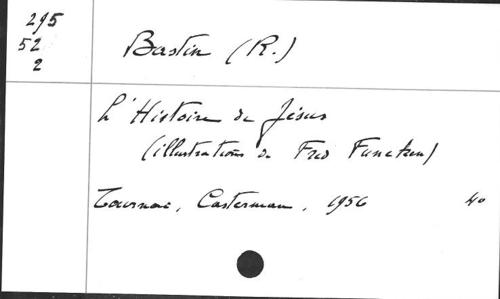 295
52
2
Bastin (R.)
L'Histoire de Jésus
(illustrations de Fred Funcken)
Tournai, Casterman, 1956 4°